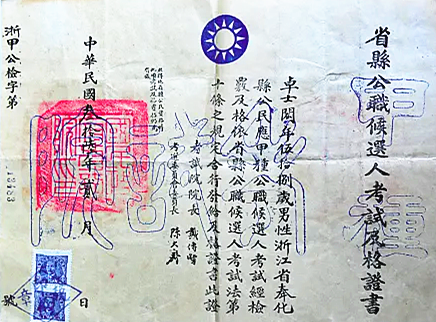 省縣公職候選人考試及格證書
卓士閎年伍拾捌歲男性浙江省奉化
縣公民應甲種公職候選人考試經檢
覈及格依省縣公職候選人考試法第
十條之規定合行發給及格證書此證
考試院院長 戴傳賢
考選委員會委員長 陳大齊
中華民國叁拾柒年貳月 日
浙甲公檢字第
號
甲種
章